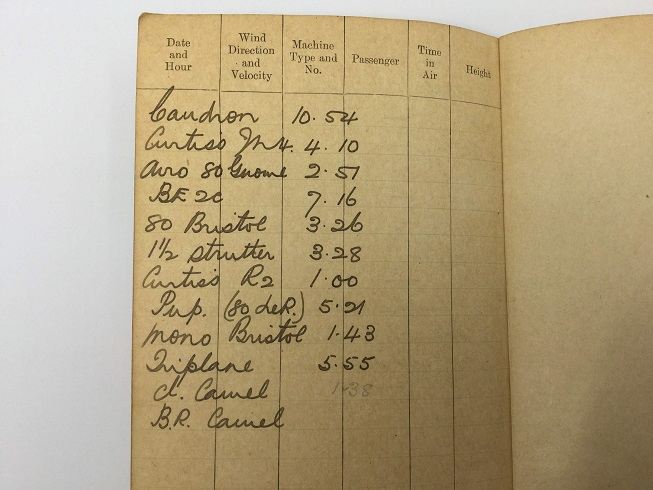 Date and Hour Wind Direction and Velocity Machine Type and No. Passenger Time in Air Height
Caudron 10.54
Curtiss JN4. 4.10
Avro 80 Gnome 2.51
BE2C 7.16
80 Bristol 3.26
1½ Strutter 3.28
Curtiss R2 1.00
Pup. (80 LeR.) 5.21
Mono Bristol 1.43
Triplane 5.55
Cl. Camel 1.38
B.R. Camel